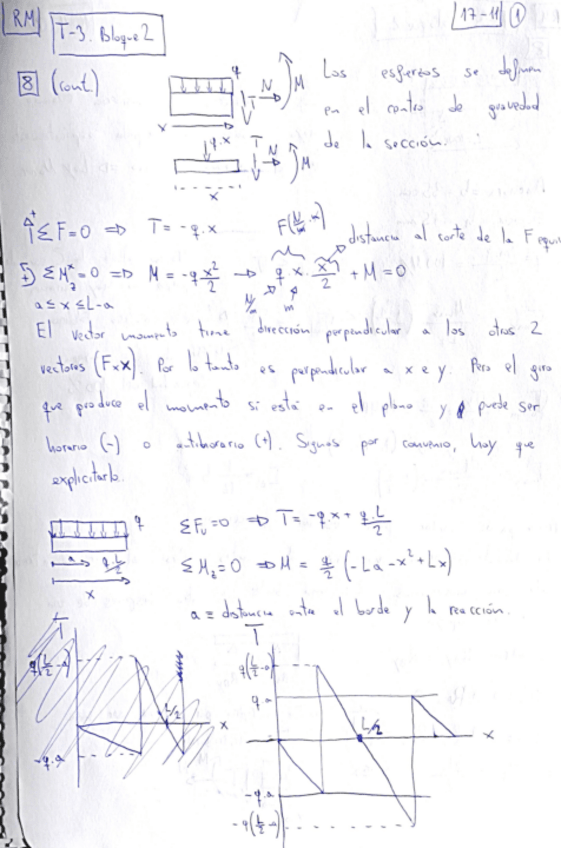 RM
T-3. Bloque 2
17-11 1
8 (cont.)
q
N
M
T
x
q.x
T
N
M
x
Los esfuerzos se definen
en el centro de gravedad
de la sección.
+↑ ΣF=0 ⇒ T = -q.x
F(N/m . x)
distancia al corte de la F equi
ΣM_z=0 ⇒ M = -q x²/2 → q x . x/2 + M = 0
N/m m
a ≤ x ≤ L-a
El vector momento tiene dirección perpendicular a los otros 2
vectores (F x x). Por lo tanto es perpendicular a x e y. Pero el giro
que produce el momento si está en el plano y puede ser
horario (-) o antihorario (+). Signos por convenio, hay que
explicitarlo.
q
a
q.L/2
x
ΣF_v=0 ⇒ T = -q.x + q.L/2
ΣM_z=0 ⇒ M = q/2 (-La - x² + Lx)
a ≡ distancia entre el borde y la reacción.
T
q(L/2-a)
L/2
x
-q.a
T
q(L/2-a)
q.a
L/2
x
-q.a
-q(L/2-a)